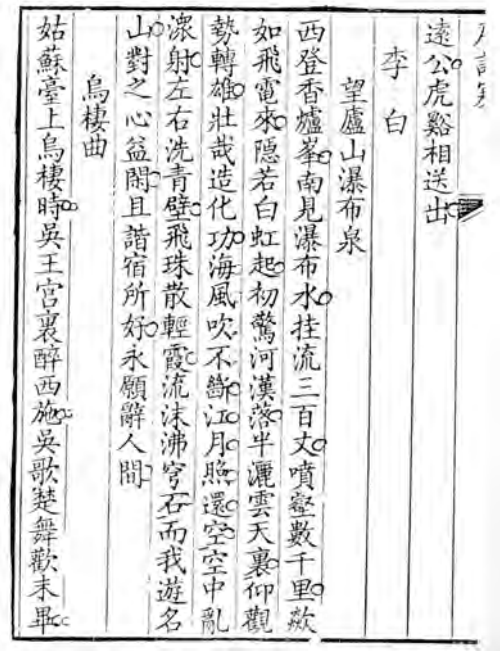 遠公虎谿相送出
李白
望廬山瀑布泉
西登香爐峯南見瀑布水挂流三百丈噴壑數千里歘
如飛電來隱若白虹起初驚河漢落半灑雲天裏仰觀
勢轉雄壯哉造化功海風吹不斷江月照還空空中亂
潨射左右洗青壁飛珠散輕霞流沫沸穹石而我遊名
山對之心益閑且諧宿所好永願辭人間
烏棲曲
姑蘇臺上烏棲時吳王宮裏醉西施吳歌楚舞歡未畢